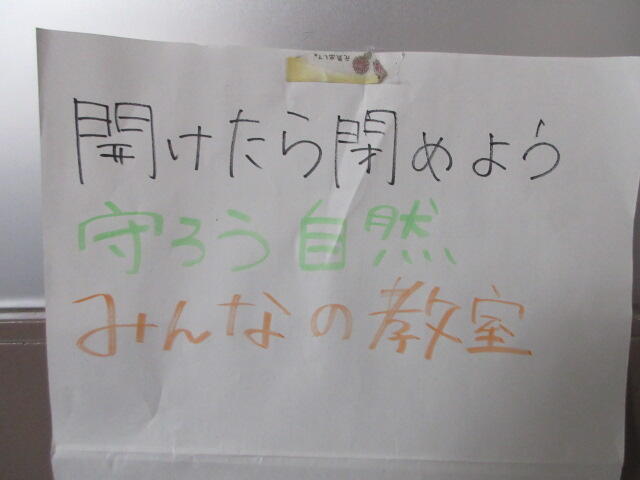 開けたら閉めよう
守ろう自然
みんなの教室